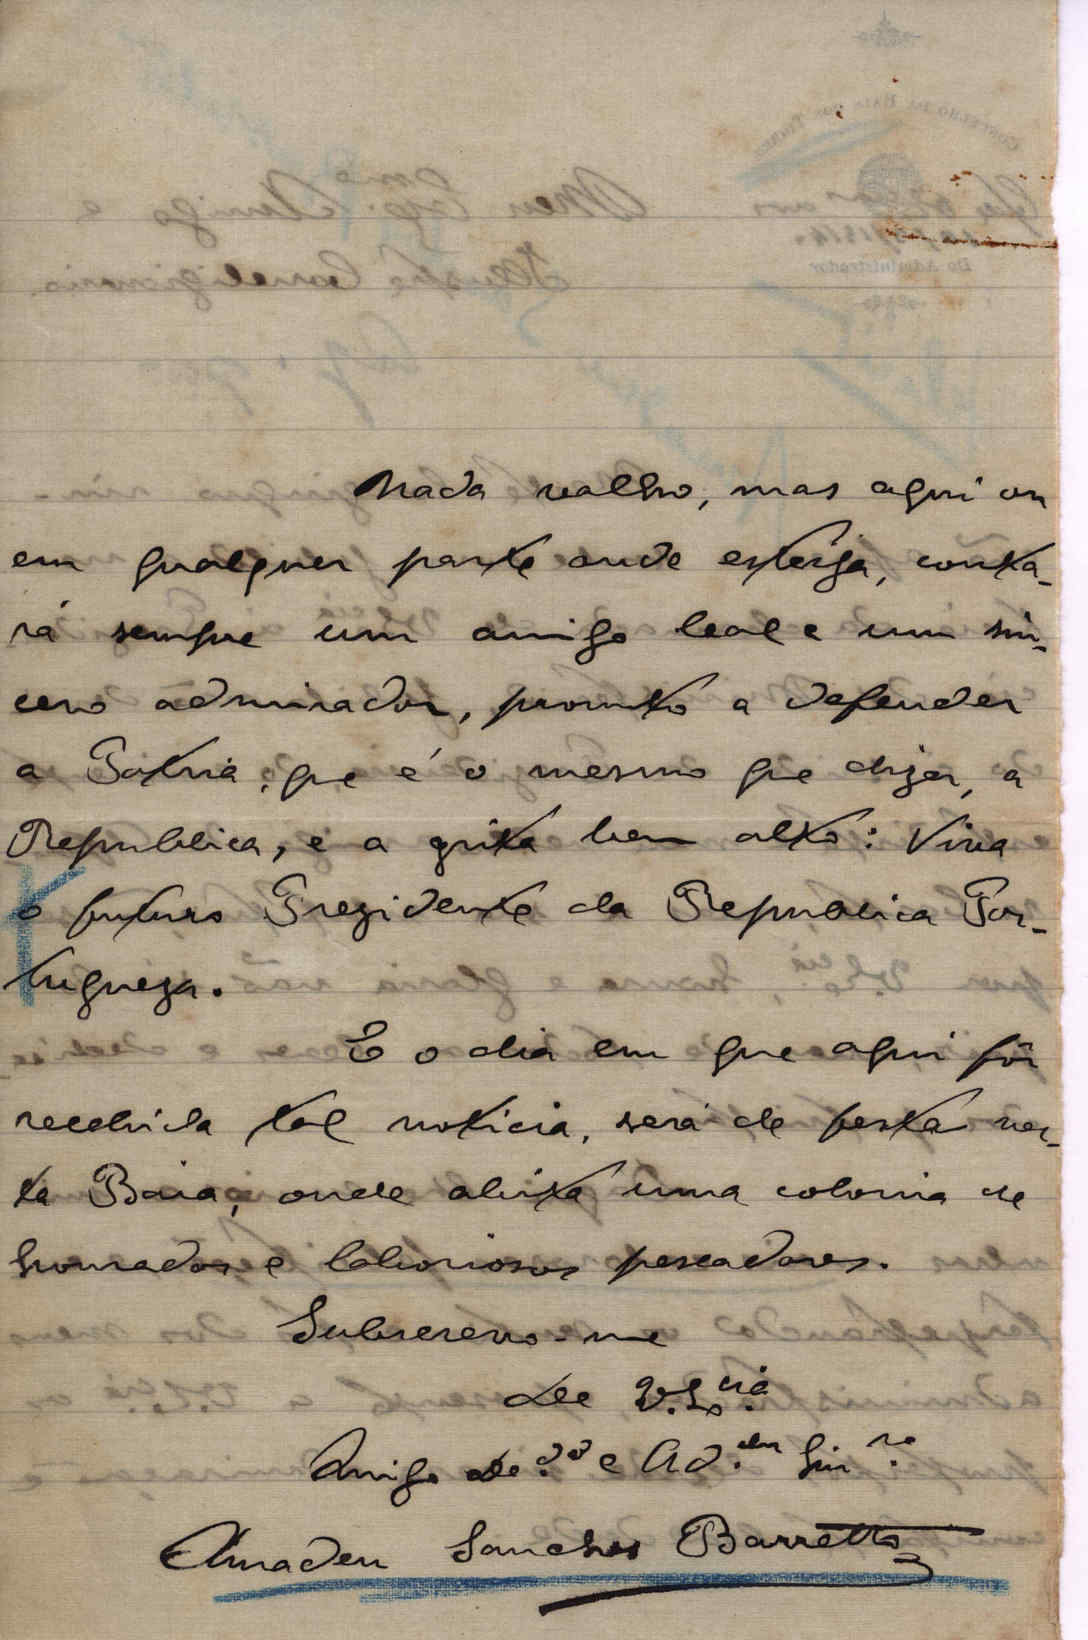 Nada valho, mas aqui ou
em qualquer parte onde esteija, conta-
rá sempre um amigo leal e um sin-
cero admirador, prompto a defender
a Patria, que é o mesmo que dizer, a
Republica, e a grita bem alto: Viva
o futuro Prezidente da Republica Por-
tugueza.
E o dia em que aqui fôr
recebida tal noticia, será de festa nes-
ta Baia, onde abita uma colonia de
honrados e laboriosos pescadores.
Subscrevo-me
De V. Ex.cia
Amigo De.do e Ad.dor Sin.ro
Amadeu Sanches Barretto